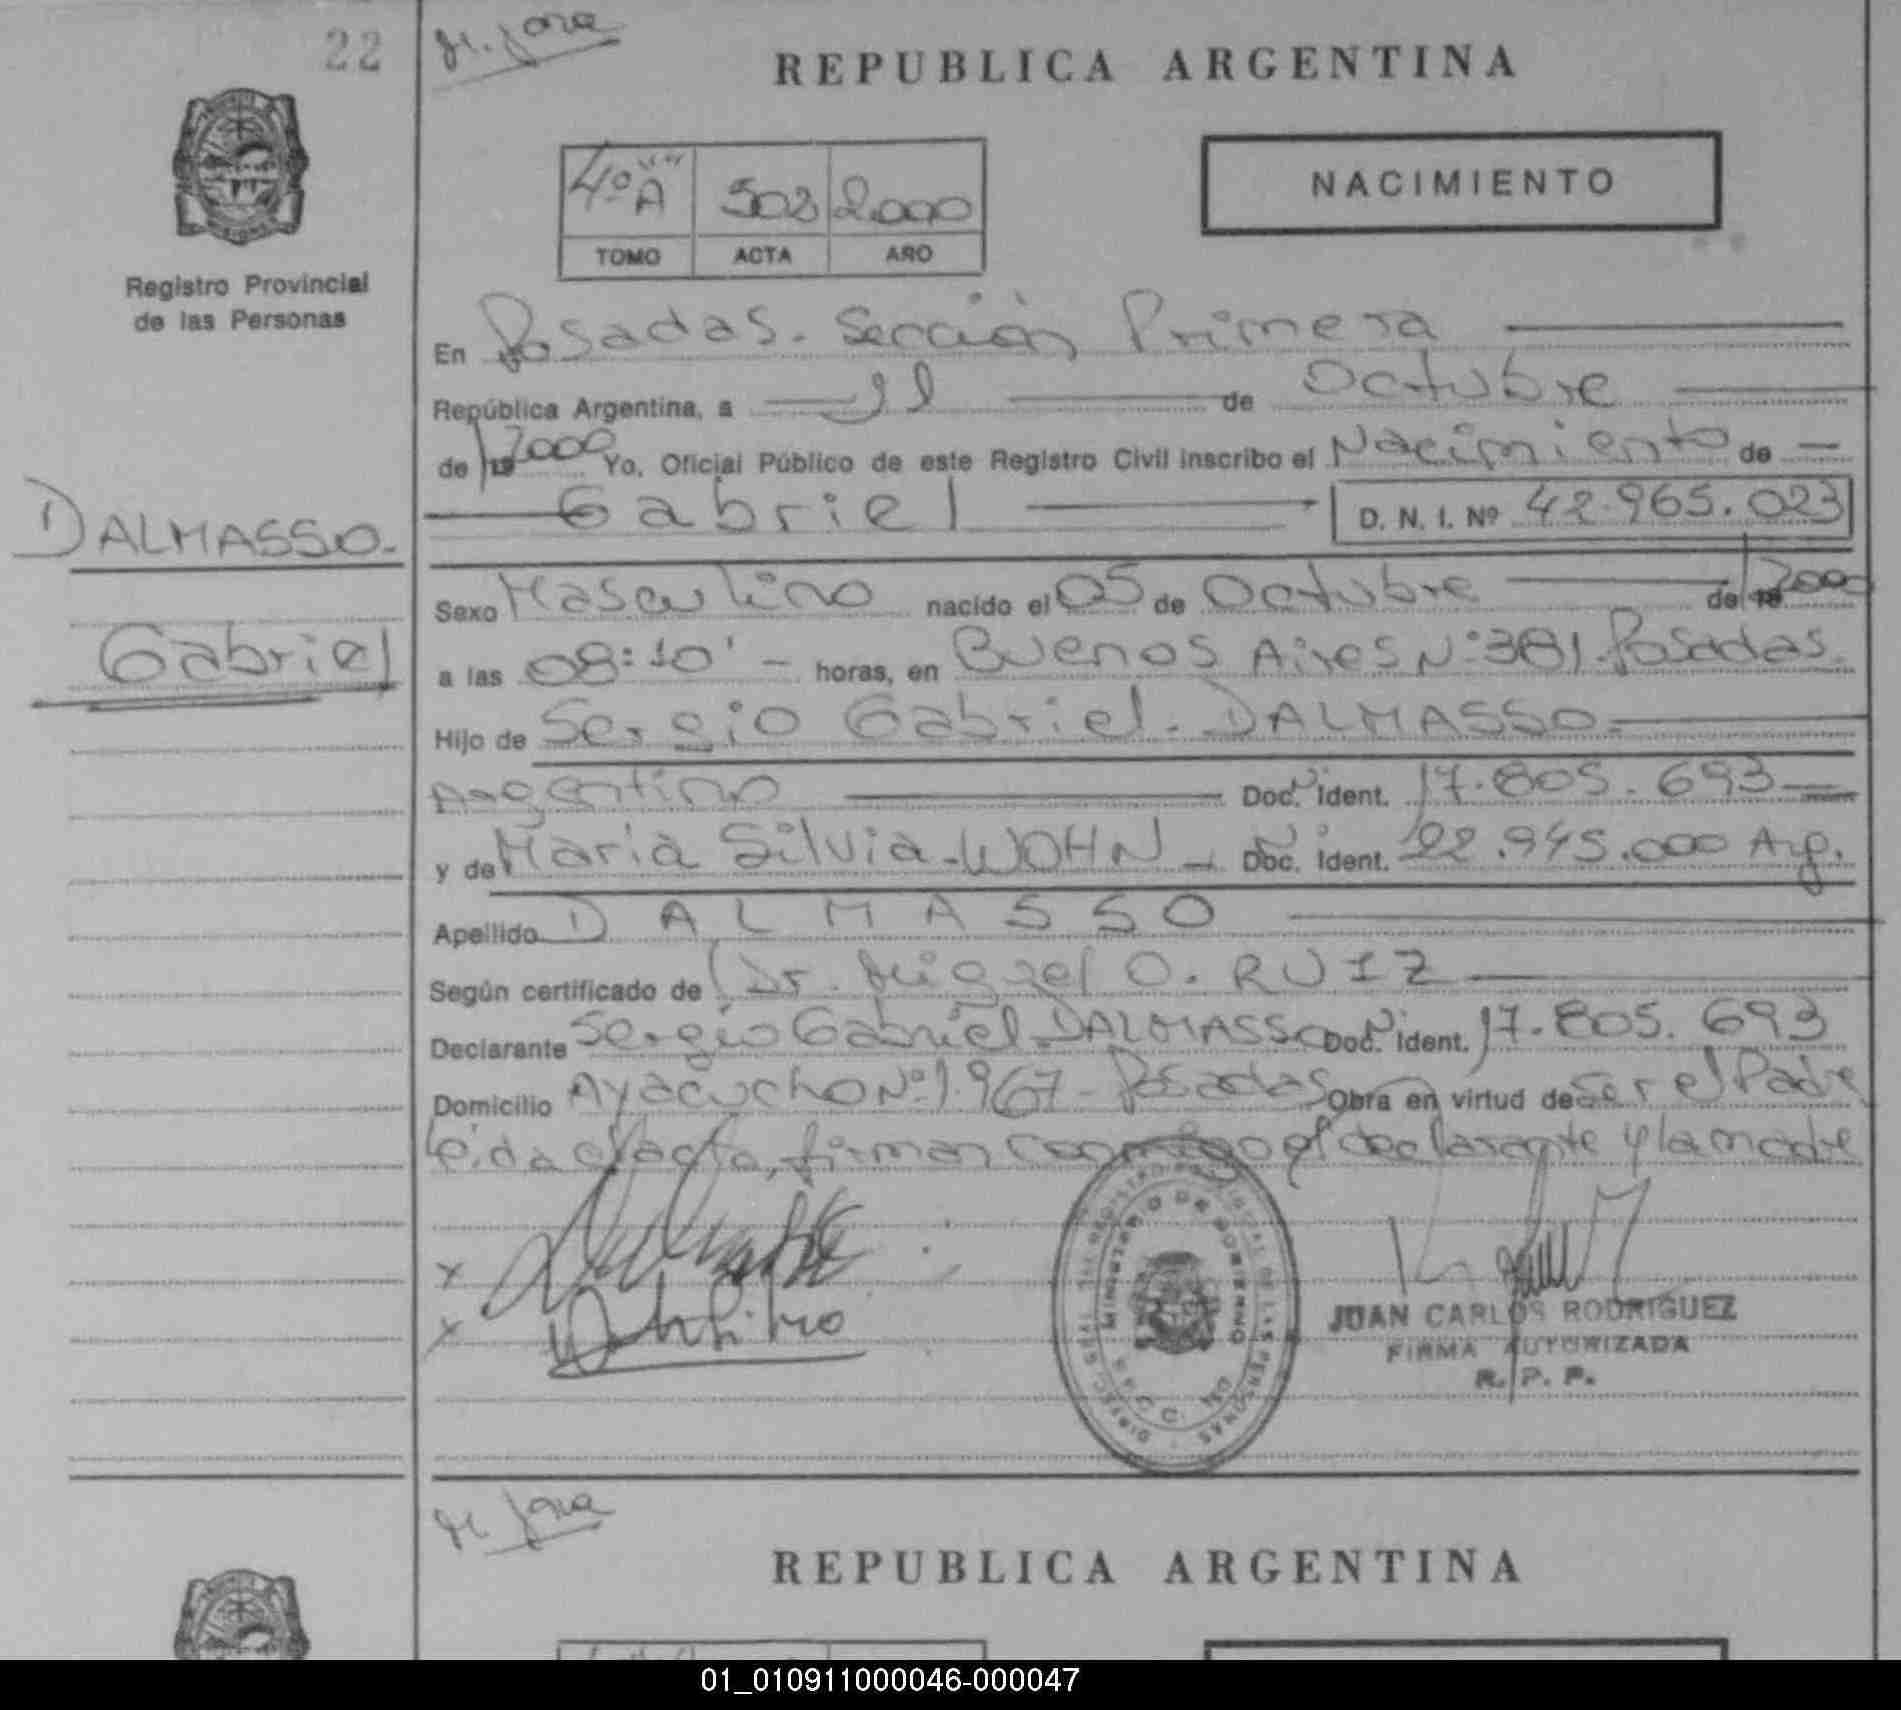 22
M. Jara
REPUBLICA ARGENTINA
4º "A" 508 2.000
TOMO ACTA AÑO
NACIMIENTO
Registro Provincial
de las Personas
En Posadas. Sección Primera
República Argentina, a 11 de Octubre
de 19 2000 Yo, Oficial Público de este Registro Civil inscribo el Nacimiento de
Gabriel D. N. I. Nº 42.965.023
DALMASSO.
Gabriel
Sexo Masculino nacido el 05 de Octubre de 19 2000
a las 08:10' - horas, en Buenos Aires Nº 381. Posadas.
Hijo de Sergio Gabriel. DALMASSO.
Argentino Doc. Nº Ident. 17.805.693
y de Maria Silvia - WOHN - Doc. Nº Ident. 22.945.000 Arg.
Apellido DALMASSO
Según certificado de Dr. Miguel O. RUIZ
Declarante Sergio Gabriel DALMASSO Doc. Nº Ident. 17.805.693
Domicilio Ayacucho Nº 1.967 - Posadas Obra en virtud de ser el Padre
Leida el acta, firman conmigo el declarante y la madre
x
x
MINISTERIO DE GOBIERNO
JUAN CARLOS RODRIGUEZ
FIRMA AUTORIZADA
R. P. P.
M. Jara
REPUBLICA ARGENTINA
01_010911000046-000047